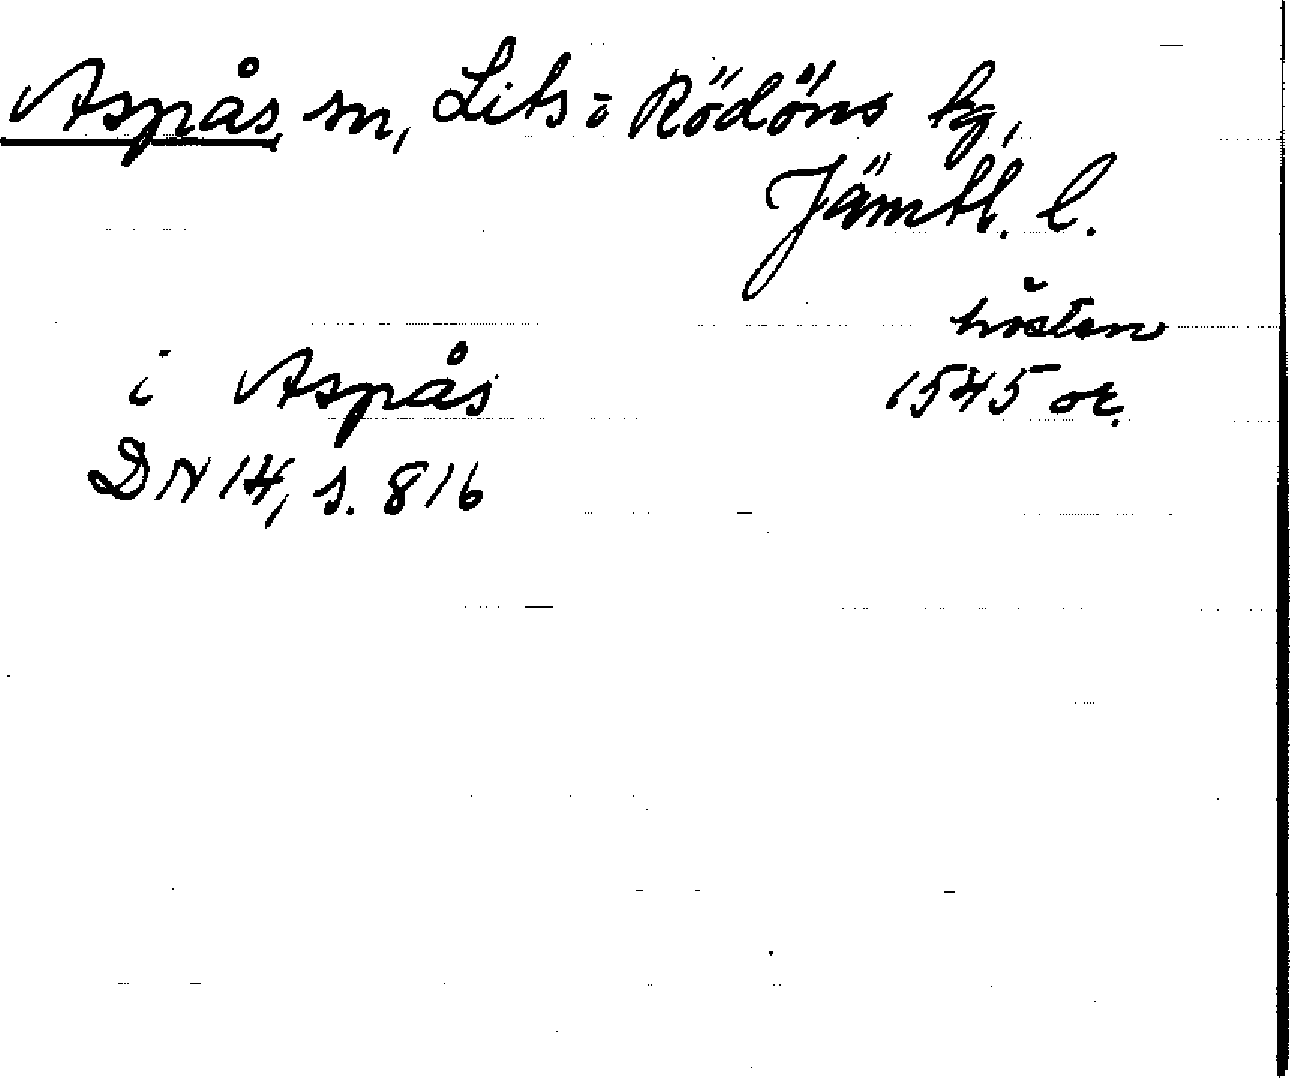 Aspås sn, Lits o Rödöns tg,
Jämtl. l.
hösten
i Aspås 1545 or.
DN 14, s. 816